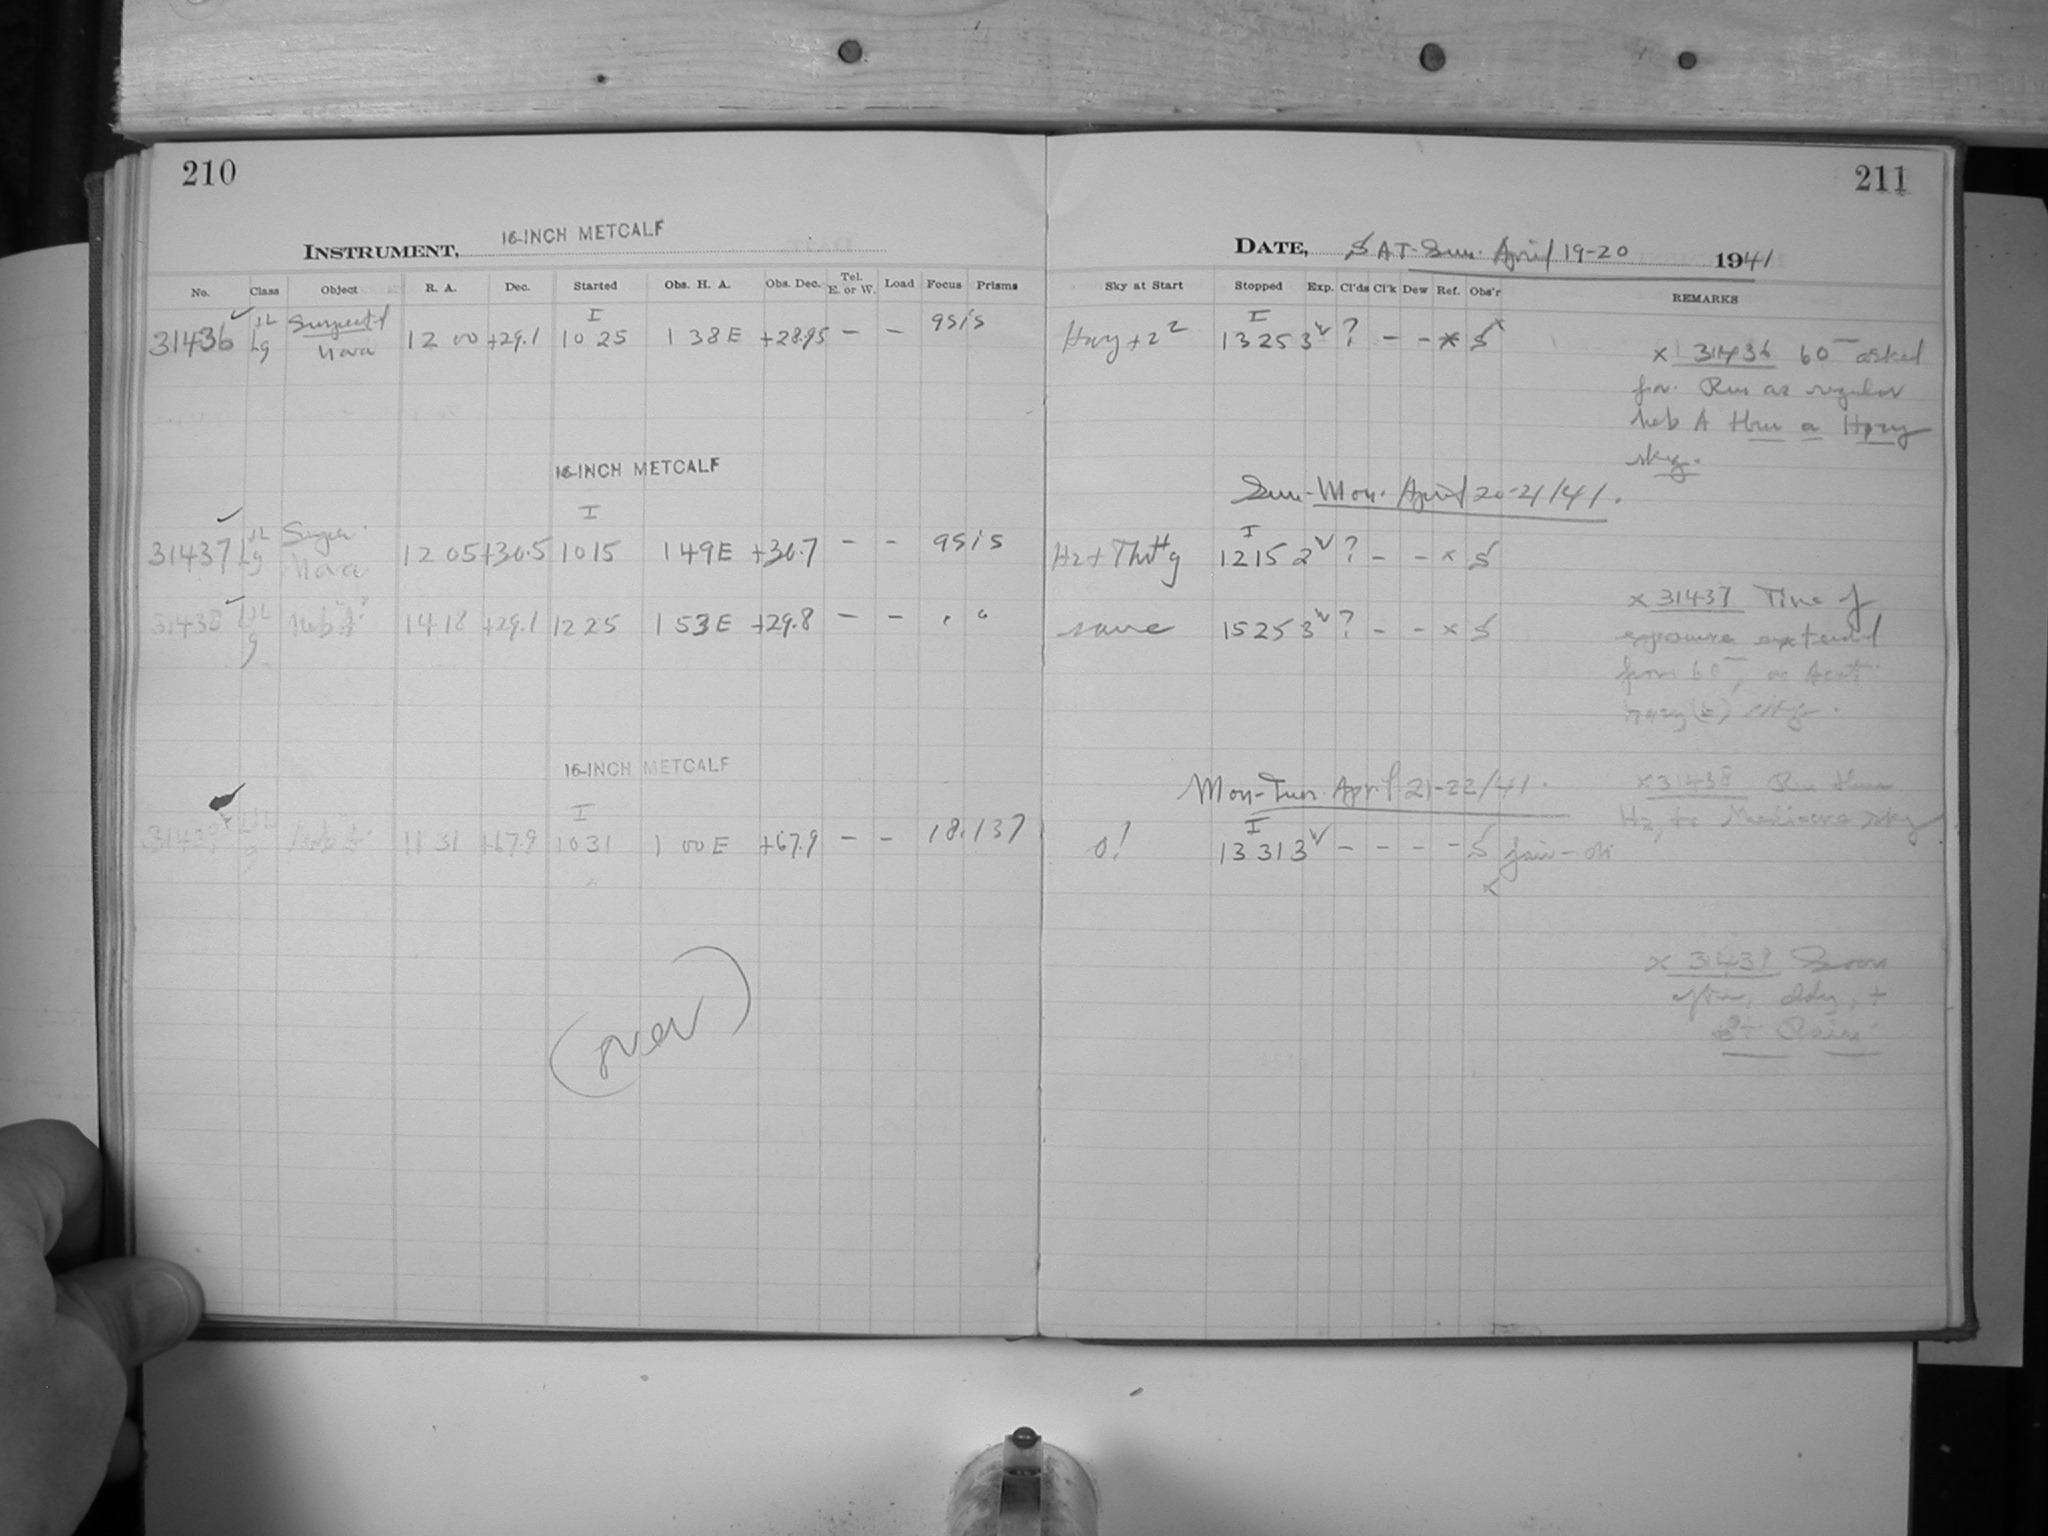 210
INSTRUMENT, 16-INCH METCALF
No. Class Object R. A. Dec. Started Obs. H. A. Obs. Dec. Tel. E. or W. Load Focus Prisms
I
31436 Lg Suspect'd Nova 12 00 +29.1 10 25 1 38 E +28.95 — — 9515
16-INCH METCALF
I
31437 Lg Super Nova 12 05 +30.5 10 15 1 49 E +30.7 — — 9515
31438 14 18 +29.1 12 25 1 53 E +29.8 — — " "
16-INCH METCALF
I
31439 11 31 +67.9 10 31 1 00 E +67.9 — — 18.137
(over)
211
DATE, SAT-Sun. April 19-20 1941
Sky at Start Stopped Exp. Cl'ds Cl'k Dew Ref. Obs'r REMARKS
I
Hzy + 2² 13 25 3 ? — — x S x
x 31436 60 asked
for. Run as regular
neb A thru a Hazy
sky.
Sun-Mon. April 20-21/41.
I
12 15 2 ? — — x S
same 15 25 3 ? — — x S
x 31437 Time of
exposure extend
from 60
Mon-Tues. April 21-22/41.
I
0! 13 31 3 — — — — S fair - ok
x
x 31438 Run thru
Hz, to Mediocre sky
x 31439 Soon
after, cldy, +
Rain